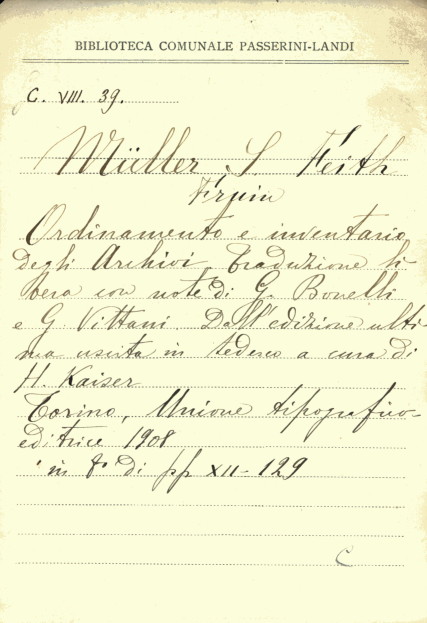 BIBLIOTECA COMUNALE PASSERINI-LANDI
C. VIII. 39.
Müller S. Feith
Fruin
Ordinamento e inventario
degli Archivi. Traduzione li
bera con note di G. Bonelli
e G. Vittani. Dall'edizione ulti-
ma uscita in tedesco a cura di
H. Kaiser
Torino, Unione tipografico-
editrice 1908
in 8° di pp XII-129
C